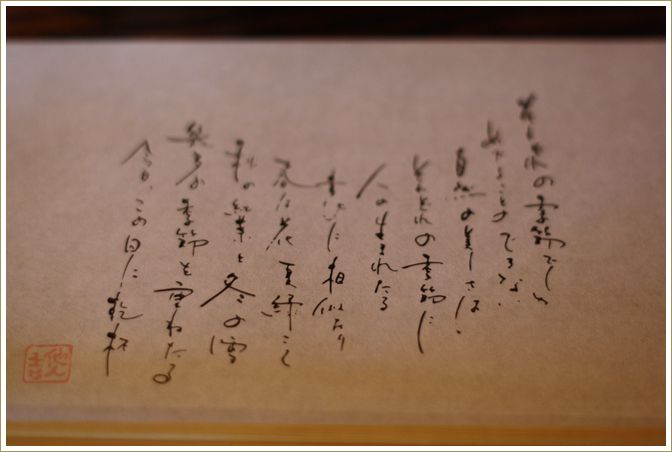 それぞれの季節でしか
めでることのできない
自然の美しさは、
それぞれの季節に
人の生まれたる
喜びに相似たり
春は花 夏緑こく
秋の紅葉と冬の雪
幾多の季節を重ねたる
今日、この日に乾杯